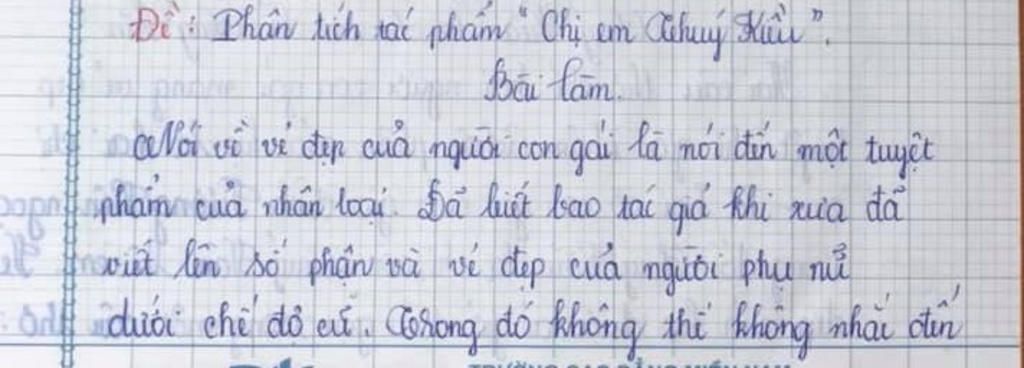 Đề: Phân tích tác phẩm "Chị em Thuý Kiều".
Bài làm.
Nói về vẻ đẹp của người con gái là nói đến một tuyệt
phẩm của nhân loại. Đã biết bao tác giả khi xưa đã
viết lên số phận và vẻ đẹp của người phụ nữ
dưới chế độ cũ. Trong đó không thể không nhắc đến